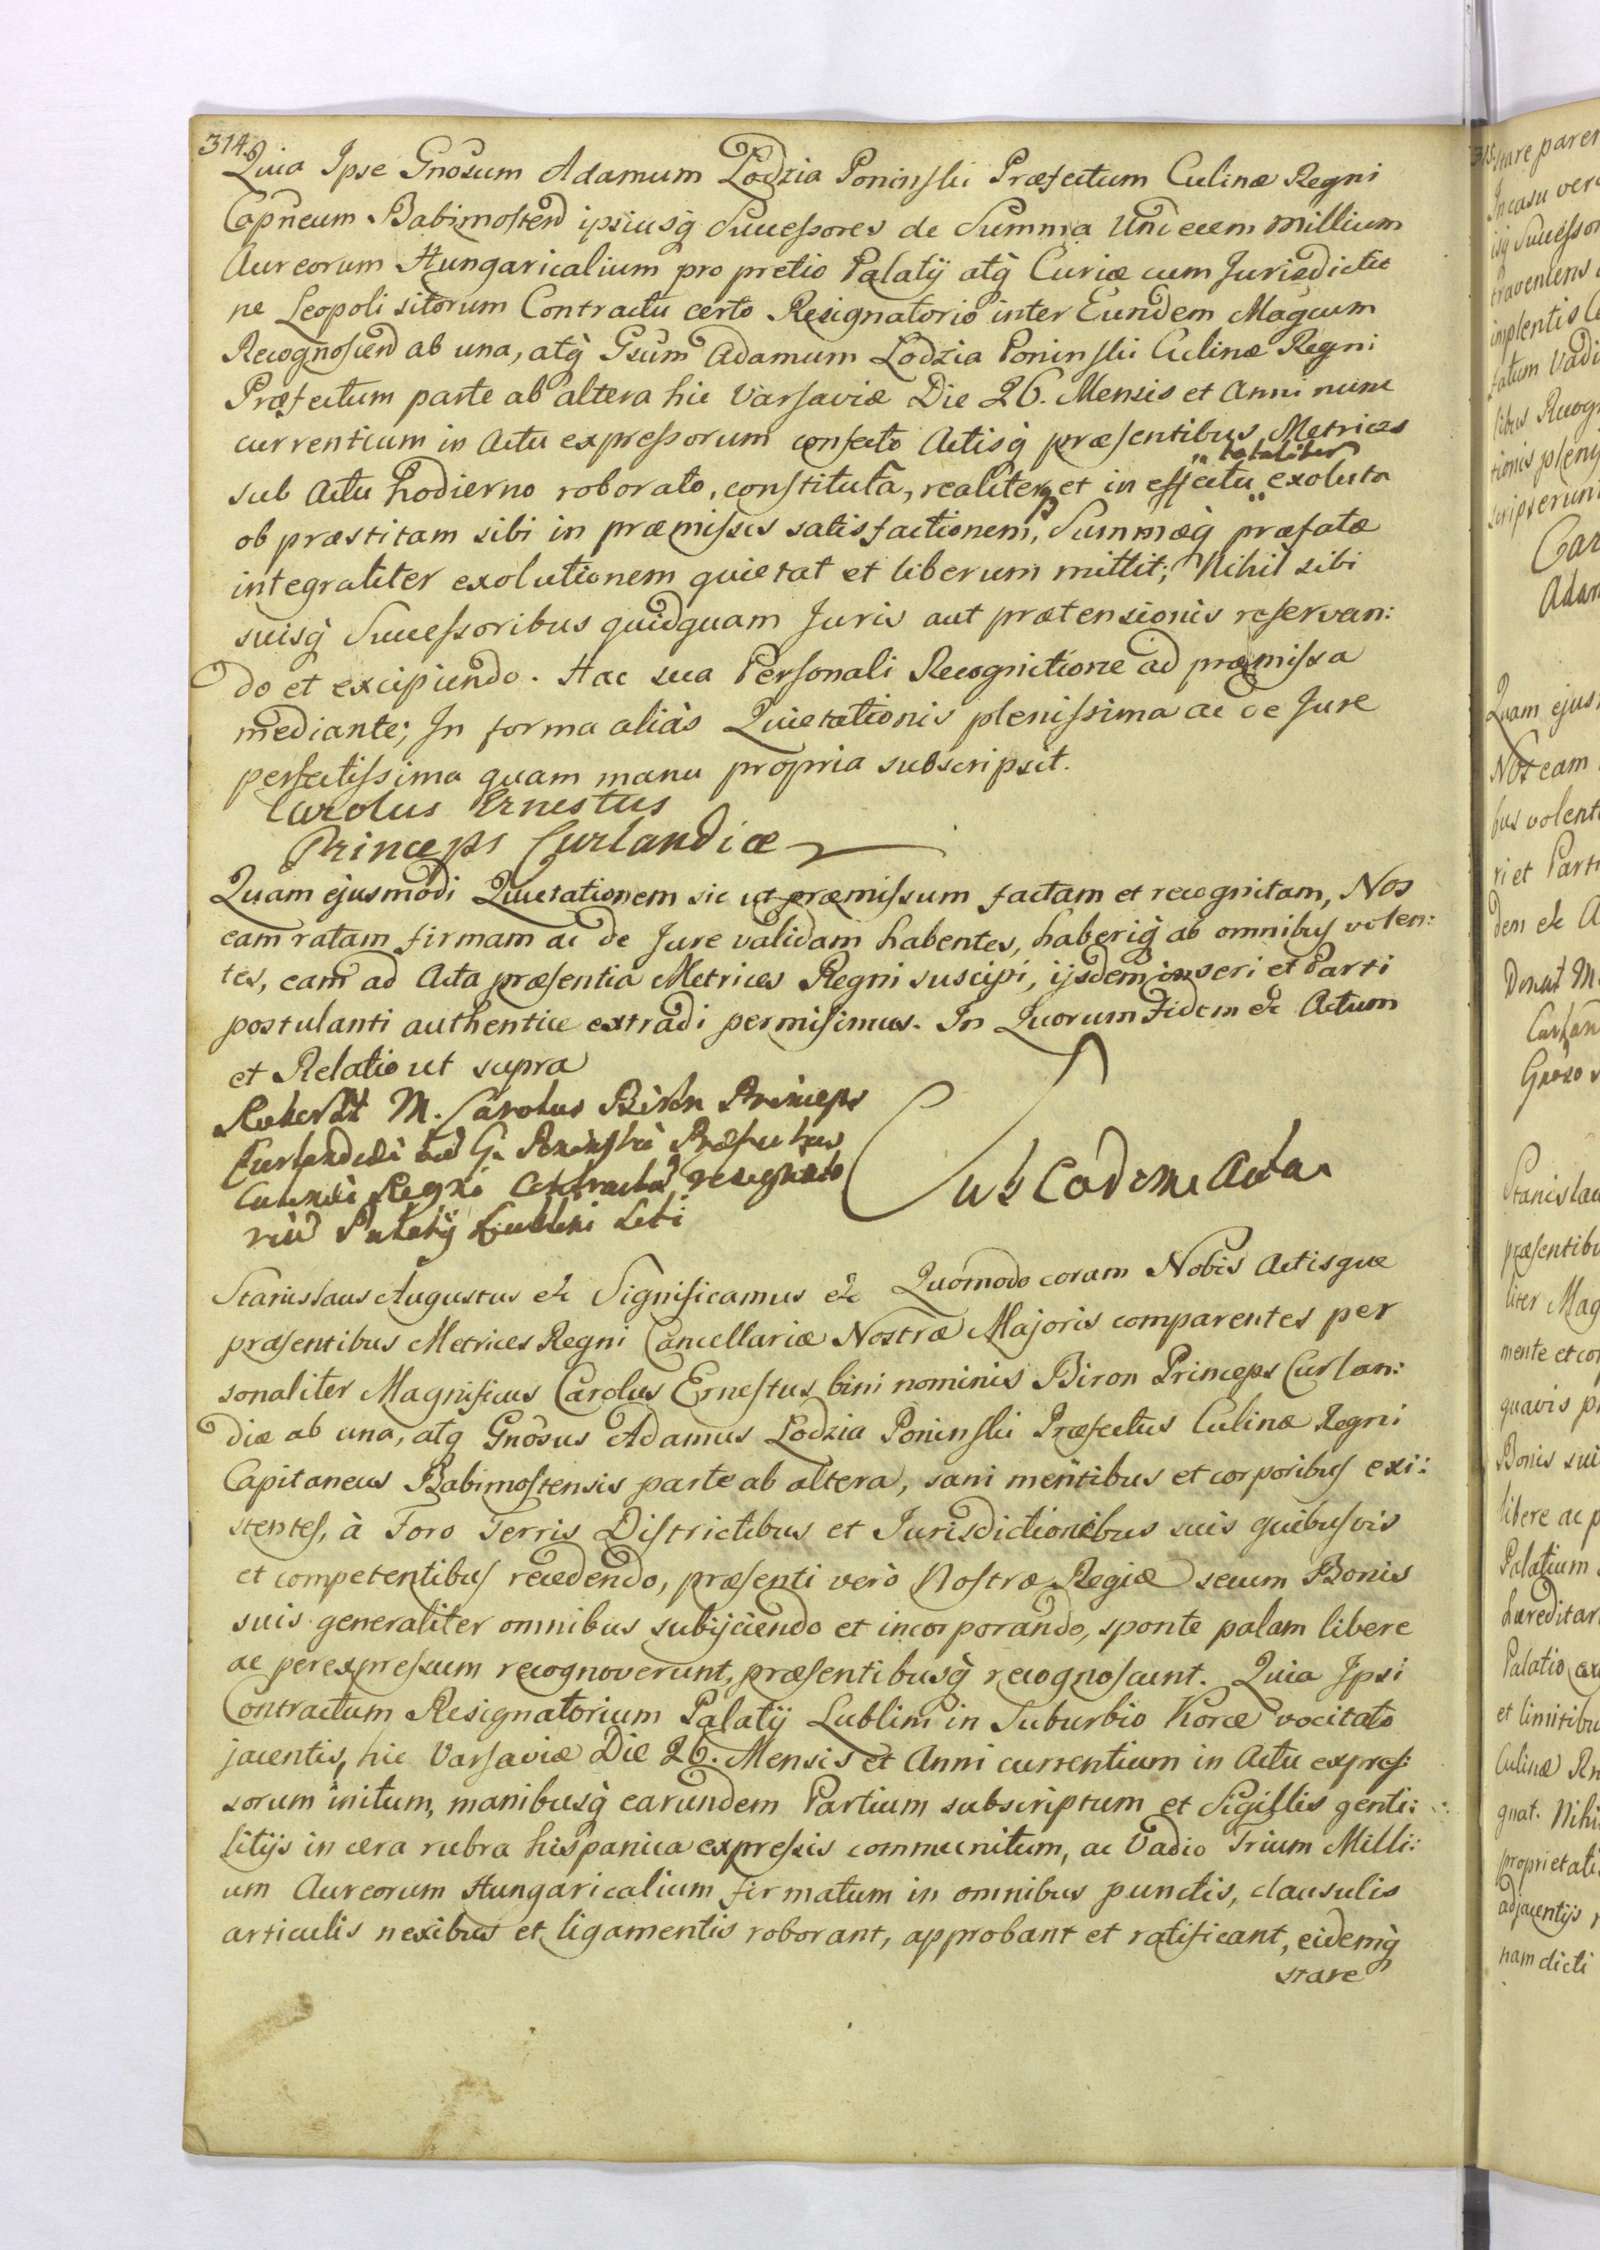 314.
Quia Ipse Gnosum Adamum Łodzia Poninski Præfectum Culinæ Regni
Capneum Babimosten ipsiusq̀ Successores de Summa Undecem millium
Aureorum Hungaricalium pro pretio Palatij atq̀ Curiæ cum Jurisdictio
ne Leopoli sitorum Contractu certo Resignatorio inter Eundem Magcum
Recognoscen ab una, atq̀ Gsum Adamum Lodzia Poninski Culinæ Regni
Præfectum parte ab altera hic Varsaviæ Die 26. Mensis et Anni nunc
currentium in Actu expressorum confecto Actisq̀ præsentibus Metrices
totaliter
sub Actu hodierno roborato, constituta, realiter et in effectu exoluta
ob præstitam sibi in præmissis satisfactionem, Summæq̀ præfatæ
integraliter exolutionem quietat et liberum mittit; Nihil sibi
suisq̀ Successoribus quidquam Juris aut prætensionis reservan:
do et excipiendo. Hac sua Personali Recognitione ad præmissa
mediante; In forma aliàs Quietationis plenissima ac de Jure
perfectissima quam manu propria subscripsit.
Carolus Ernestus
Princeps Curlandiæ
Quam ejusmodi Quietationem sic ut præmissum factam et recognitam, Nos
eam ratam firmam ac de Jure validam habentes, haberiq̀ ab omnibus volen:
tes, eam ad Acta præsentia Metrices Regni suscipi, ijsdem inseri et Parti
postulanti authentice extradi permisimus. In Quorum Fidem &c Actum
et Relatio ut supra
M. Carolus Biron Princeps
G. Poninski Præfectus
Culinæ Regni Contractus resignato
Palatij Lublini
Sub Eodem Actu
Stanislaus Augustus &c Significamus &c Quomodo coram Nobis Actisque
præsentibus Metrices Regni Cancellariæ Nostræ Majoris comparentes per
sonaliter Magnificus Carolus Ernestus bini nominis Biron Princeps Curlan:
diæ ab una, atq Gnosus Adamus Lodzia Poninski Præfectus Culinæ Regni
Capitaneus Babimostensis parte ab altera, sani mentibus et corporibus exi:
stentes, à Foro Terris Districtibus et Jurisdictionibus suis quibusvis
et competentibus recedendo, præsenti verò Nostræ Regiæ secum Bonis
suis generaliter omnibus subijciendo et incorporando, sponte palam libere
ac per expressum recognoverunt, præsentibusq̀ recognoscunt. Quia Ipsi
Contractum Resignatorium Palatij Lublini in Suburbio Korce vocitato
jacentis, hic Varsaviæ Die 26. Mensis et Anni currentium in Actu expres:
sorum initum, manibusq̀ earundem Partium subscriptum et Sigillis genti:
litijs in cera rubra hispanica expressis communitum, ac Vadio Trium Milli:
um Aureorum Hungaricalium firmatum in omnibus punctis, clausulis
articulis nexibus et ligamentis roborant, approbant et ratificant, eidemq̀
stare
315.
stare paren
In casu ver
isq Successor
traveniens
implentis C
fatum Vadi
libus Recogn
tionis pleni
scripserunt
Car
Adam
Quam ejus
Nos eam
bus volent
ri et Parti
dem &c A
M.
Curlan
Stanislau
præsentibu
liter Mag
mente et cor
quavis p
Bonis sui
libere ac p
Palatium
hæreditar
Palatio
et limitibu
Culinæ Re
gnat. Nihi
proprietati
adjacentijs
nam dicti